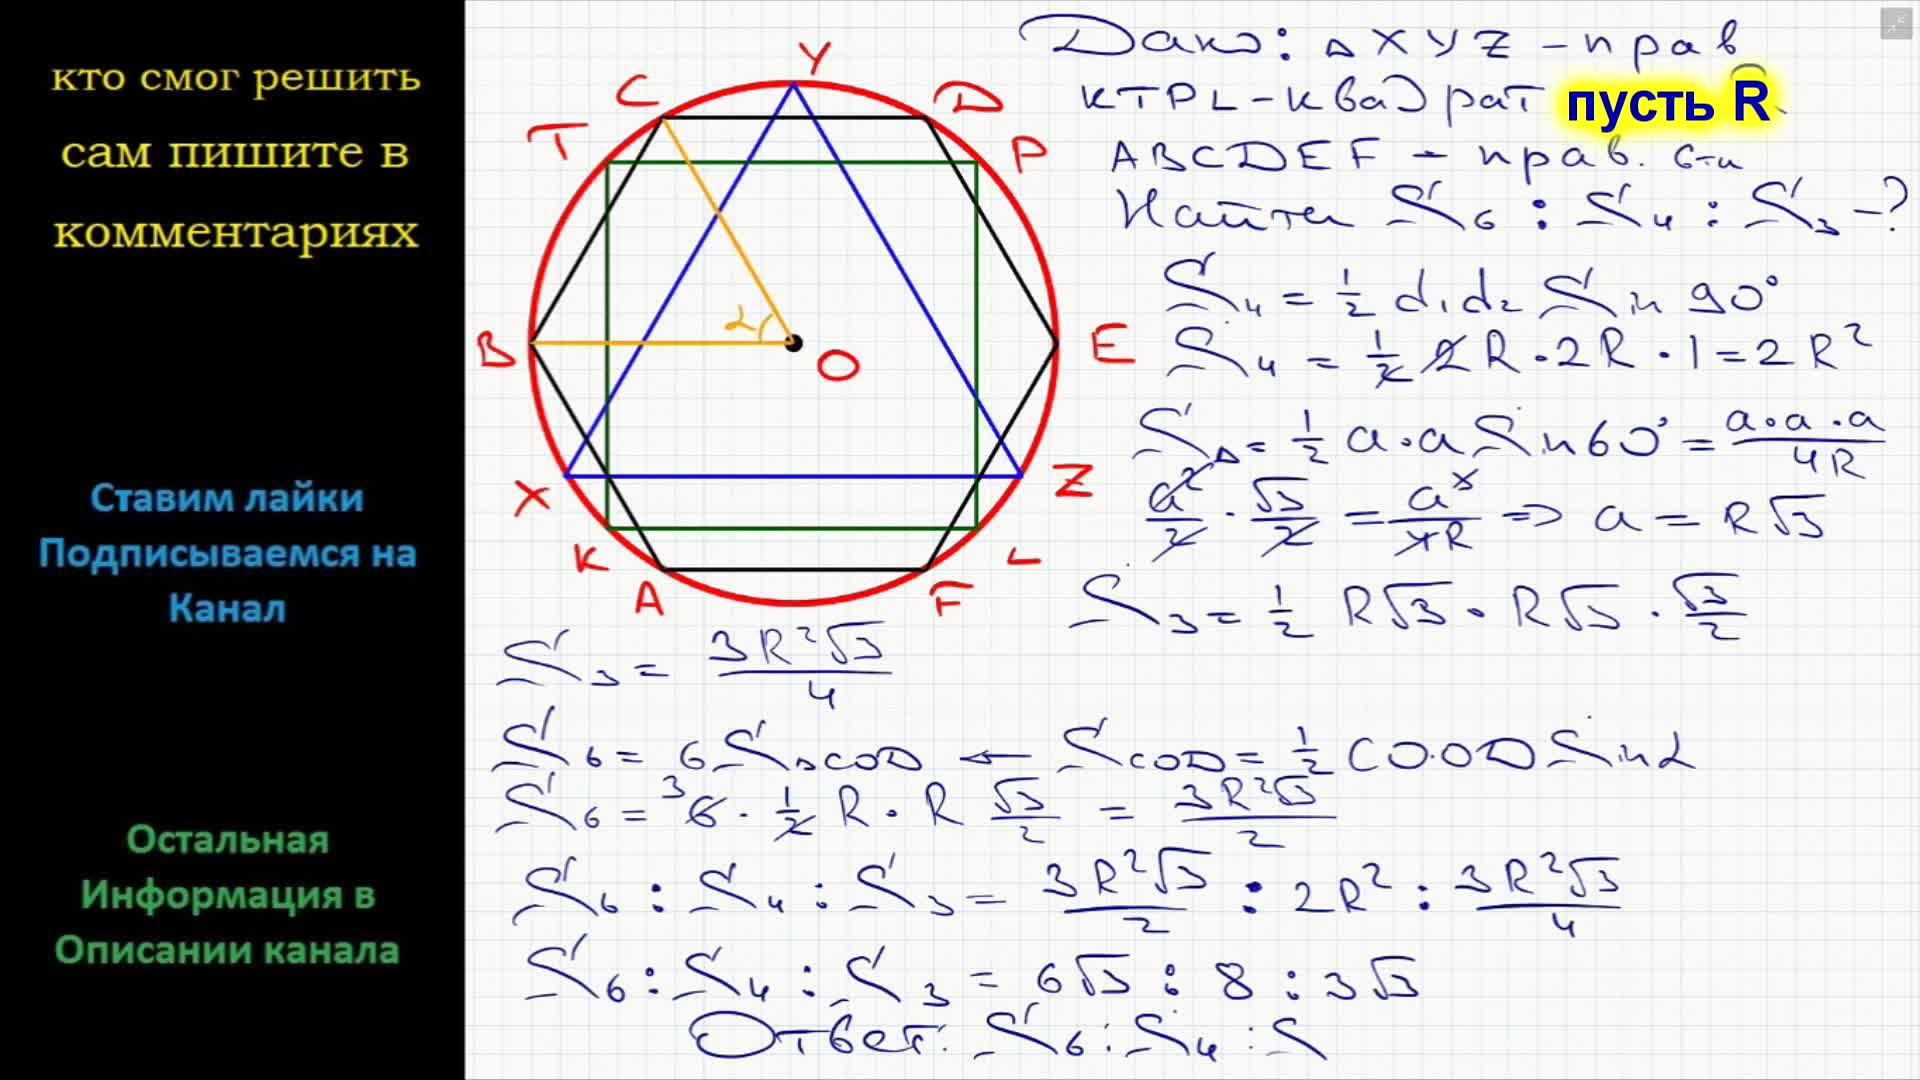 кто смог решить
сам пишите в
комментариях
Ставим лайки
Подписываемся на
Канал
Остальная
Информация в
Описании канала
Y
C
D
T
P
B
E
α
O
X
Z
K
L
A
F
Дано: Δ XYZ – прав
KTPL – квадрат пусть R
ABCDEF – прав. 6-и
Найти S₆ : S₄ : S₃ – ?
S₄ = 1/2 d₁d₂ Sin 90°
S₄ = 1/2 2R · 2R · 1 = 2R²
S_Δ = 1/2 a · a Sin 60° = a·a·a/4R
a²/2 · √3/2 = a³/4R => a = R√3
S₃ = 1/2 R√3 · R√3 · √3/2
S₃ = 3R²√3/4
S₆ = 6 S_ΔCOD ← S_COD = 1/2 CO·OD Sin α
S₆ = ³6 · 1/2 R · R √3/2 = 3R²√3/2
S₆ : S₄ : S₃ = 3R²√3/2 : 2R² : 3R²√3/4
S₆ : S₄ : S₃ = 6√3 : 8 : 3√3
Ответ: S₆ : S₄ : S